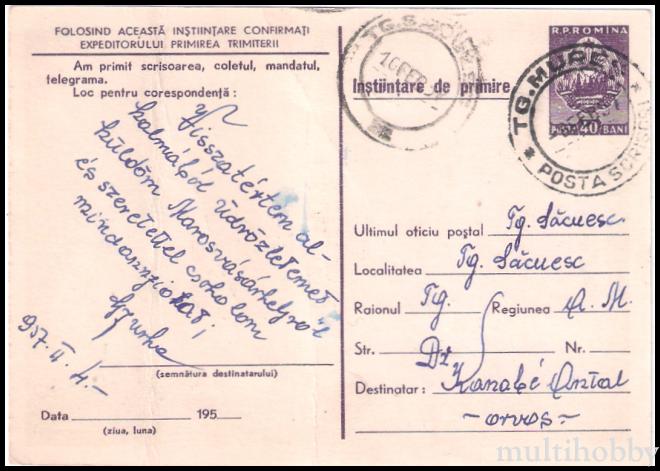 FOLOSIND ACEASTĂ INȘTIINȚARE CONFIRMAȚI
EXPEDITORULUI PRIMIREA TRIMITERII
Am primit scrisoarea, coletul, mandatul,
telegrama.
Loc pentru corespondență :
Visszatértem al-
kalmából üdvözletemet
küldöm Marosvásárhelyről
és szeretettel csókolom
mindannyiokat;
957. II. 4.-
(semnătura destinatarului)
Data 195
(ziua, luna)
R.P.ROMINA
POSTA 40 BANI
TG. MUREȘ
POSTA SCRISO
Inștiințare de primire
Ultimul oficiu poștal Tg. Săcuesc
Localitatea Tg. Săcuesc
Raionul Tg. Regiunea A. M.
Str. Nr.
Destinatar : Dr Kanabé Antal
- orvos -
multihobby